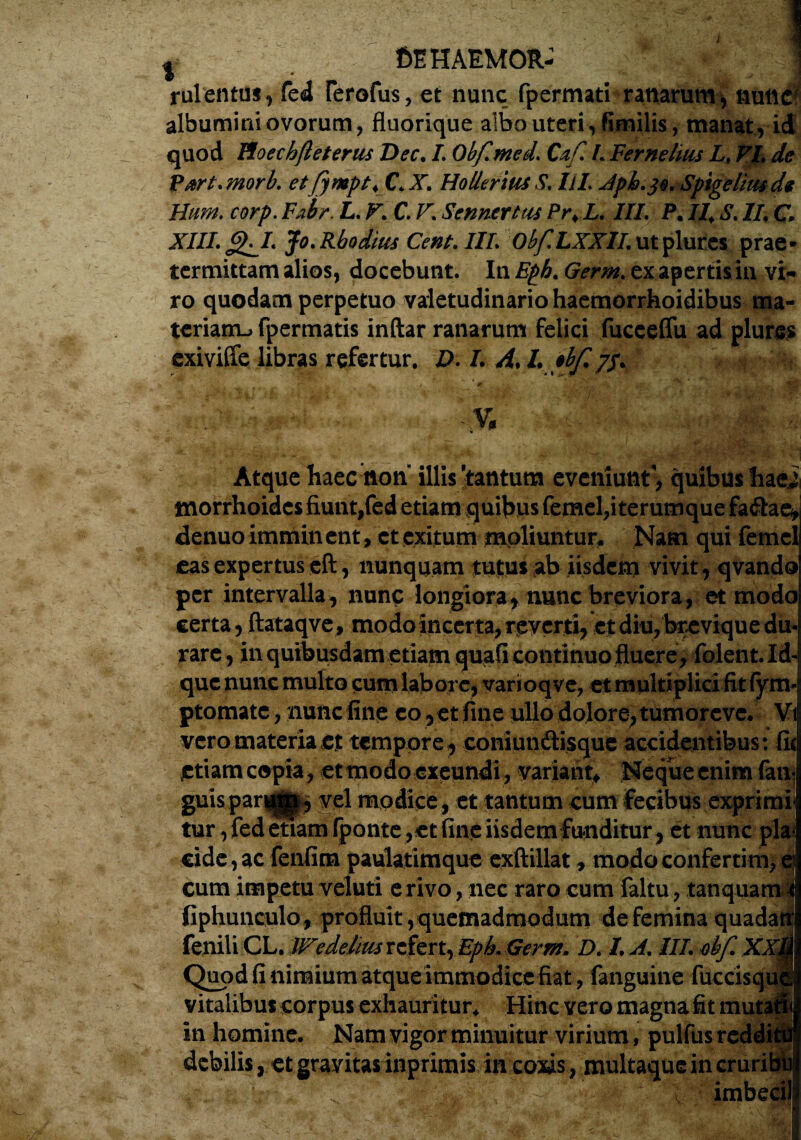 DE HAEMOR-
rulentus, sed serosus, et nunc spermati ranarum, nunc
albumini ovorum, fluorique albo uteri, similis, manat, id
quod Hoechsteterus Dec. I. Obs. med. Cas. I. Fernelius L. VI. de
Part. morb. et sympt. C. X. Hollerius S. III. Aph. 30. Spigelius de
Hum. corp. Fabr. L. V. C. V. Sennertus Pr. L. III. P. II. S. II. C.
XIII. Q. I. Jo. Rhodius Cent. III. Obs. LXXII. ut plures prae-
termittam alios, docebunt. In Eph. Germ. ex apertis in vi-
ro quodam perpetuo valetudinario haemorrhoidibus ma-
teriam spermatis instar ranarum felici successu ad plures
exivisse libras refertur. D. I. A. I. obs. 75.
V.
Atque haec non illis tantum eveniunt, quibus hae-
morrhoides fiunt, sed etiam quibus semel, iterumque factae,
denuo imminent, et exitum moliuntur. Nam qui semel
eas expertus est, nunquam tutus ab iisdem vivit, qvando
per intervalla, nunc longiora, nunc breviora, et modo
certa, stataqve, modo incerta, reverti, et diu, brevique du-
rare, in quibusdam etiam quasi continuo fluere, solent. Id-
que nunc multo cum labore, varioqve, et multiplici fit sym-
ptomate, nunc sine eo, et sine ullo dolore, tumoreve. Vt
vero materia et tempore, coniunctisque accidentibus: sic
etiam copia, et modo exeundi, variant. Neque enim san-
guis parum, vel modice, et tantum cum fecibus exprimi-
tur, sed etiam sponte, et sine iisdem funditur, et nunc pla-
cide, ac sensim paulatimque exstillat, modo confertim, et
cum impetu veluti e rivo, nec raro cum saltu, tanquam e
siphunculo, profluit, quemadmodum de femina quadam
senili CL. Wedelius refert, Eph. Germ. D. I. A. III. obs.
Quod si nimium atque immodice fiat, sanguine succisque
vitalibus corpus exhauritur. Hinc vero magna fit mutatio
in homine. Nam vigor minuitur virium, pulsus redditur
debilis, et gravitas inprimis in coxis, multaque in cruribus
imbecil-